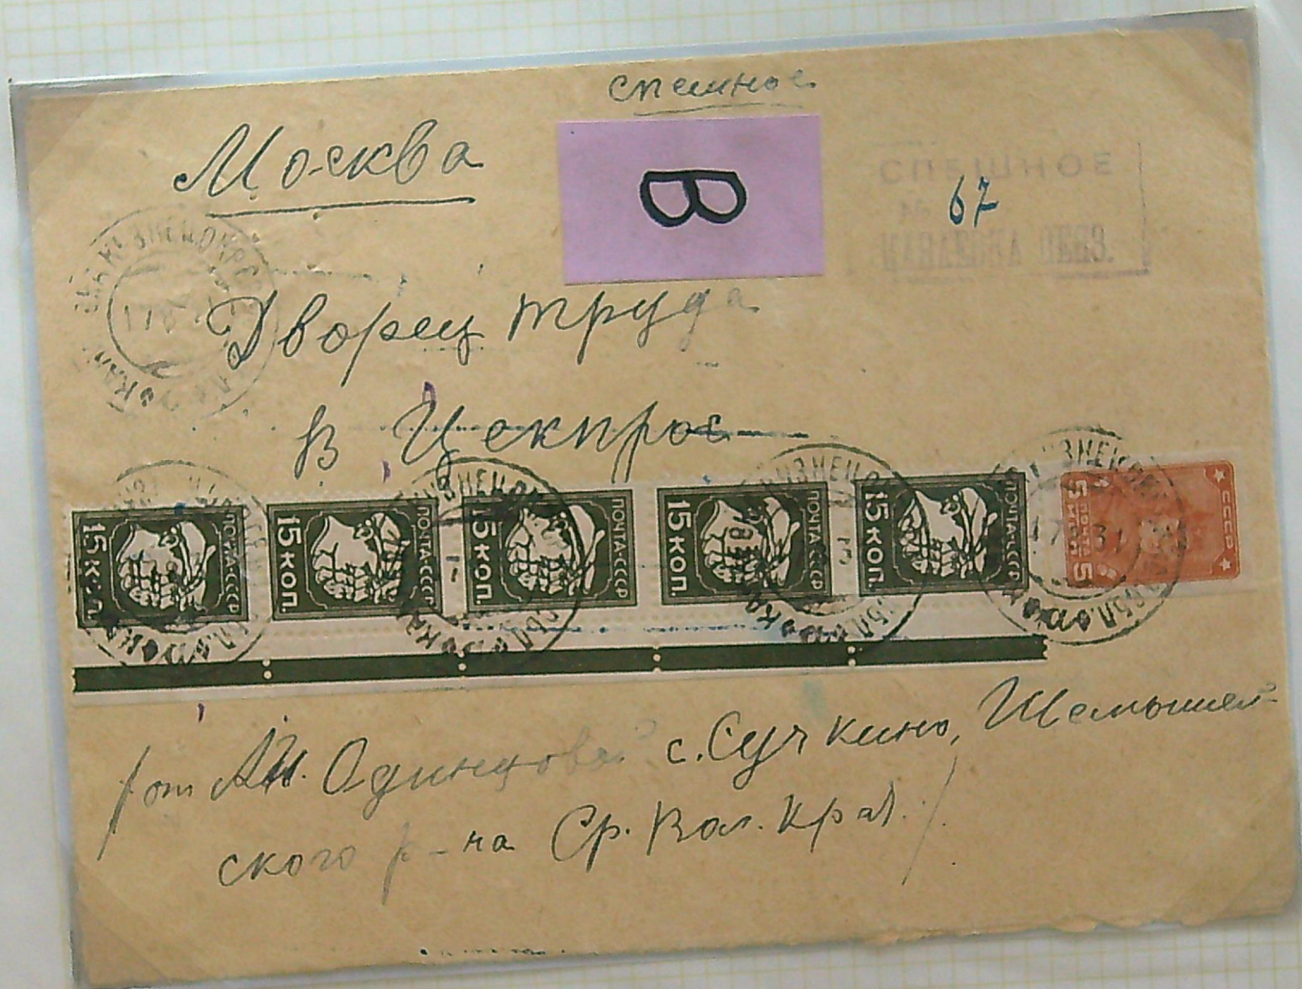 спешное
Москва
В
СПЕШНОЕ
№ 67
Дворец труда
в Цекпрос
15 КОП. ПОЧТА СССР
15 КОП. ПОЧТА СССР
15 КОП. ПОЧТА СССР
15 КОП. ПОЧТА СССР
15 КОП. ПОЧТА СССР
5 ПОЧТА 5 СССР
/от А.И. Одинцовой с. Сучкино, Шемышей-
ского р-на Ср. Вол. Края./